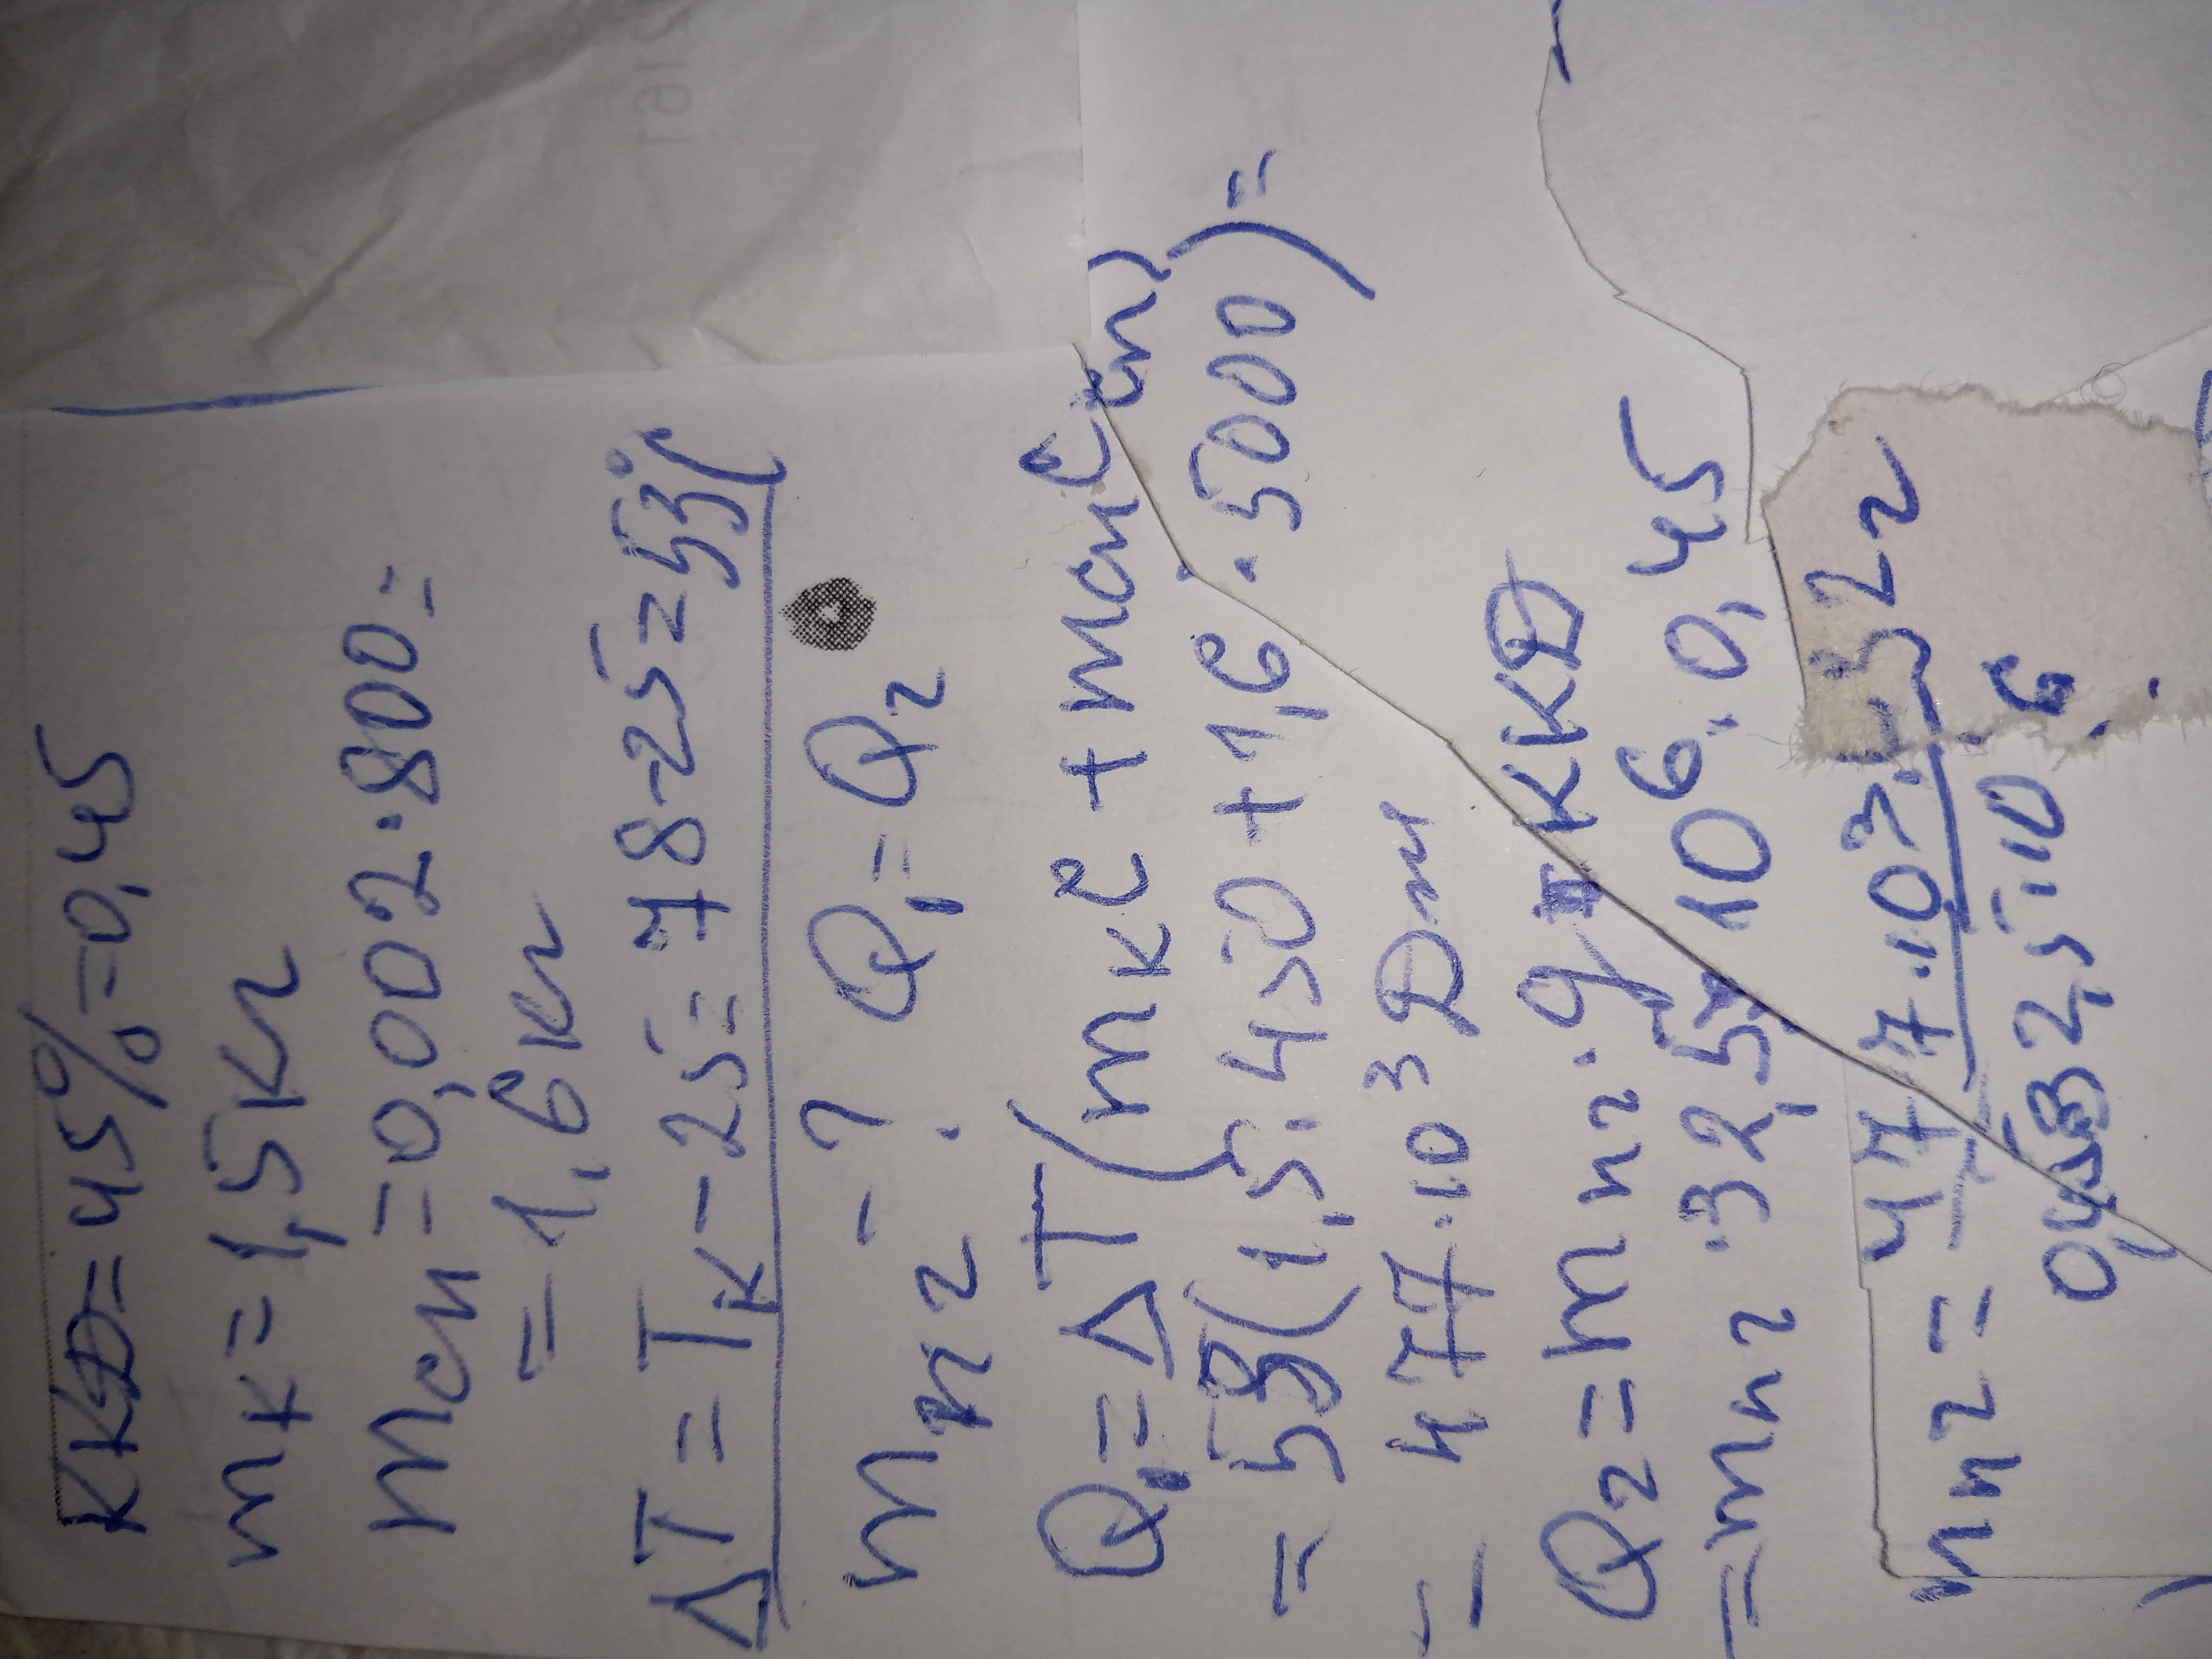 ККД=45%=0,45
mк=1,5кг
mсп=0,002·800=
=1,6кг
ΔT=Tк-25=78-25=53°C
mпг-? Q₁=Q₂
Q₁=ΔT(mкc+mспcсп)=
=53(1,5·450+1,6·5000)=
=477·10³Дж
Q₂=mпг·q·ККД
=mпг·32,5·10⁶·0,45
=477·10³
32,5·10⁶